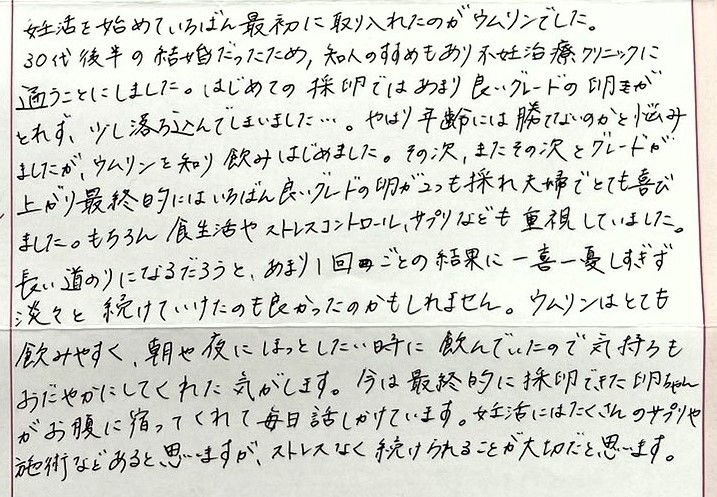 妊活を始めていちばん最初に取り入れたのがウムリンでした。
30代後半の結婚だったため、知人のすすめもあり不妊治療クリニックに
通うことにしました。はじめての採卵ではあまり良いグレードの卵が
とれず、少し落ち込んでしまいました…。やはり年齢には勝てないのかと悩み
ましたが、ウムリンを知り飲みはじめました。その次、またその次とグレードが
上がり最終的にはいちばん良いグレードの卵が2つも採れ夫婦でとても喜び
ました。もちろん食生活やストレスコントロール、サプリなども重視していました。
長い道のりになるだろうと、あまり1回ごとの結果に一喜一憂しすぎず
淡々と続けていけたのも良かったのかもしれません。ウムリンはとても
飲みやすく、朝や夜にほっとしたい時に飲んでいたので気持ちも
おだやかにしてくれた気がします。今は最終的に採卵できた卵ちゃん
がお腹に宿ってくれて毎日話しかけています。妊活にはたくさんのサプリや
施術などあると思いますが、ストレスなく続けられることが大切だと思います。